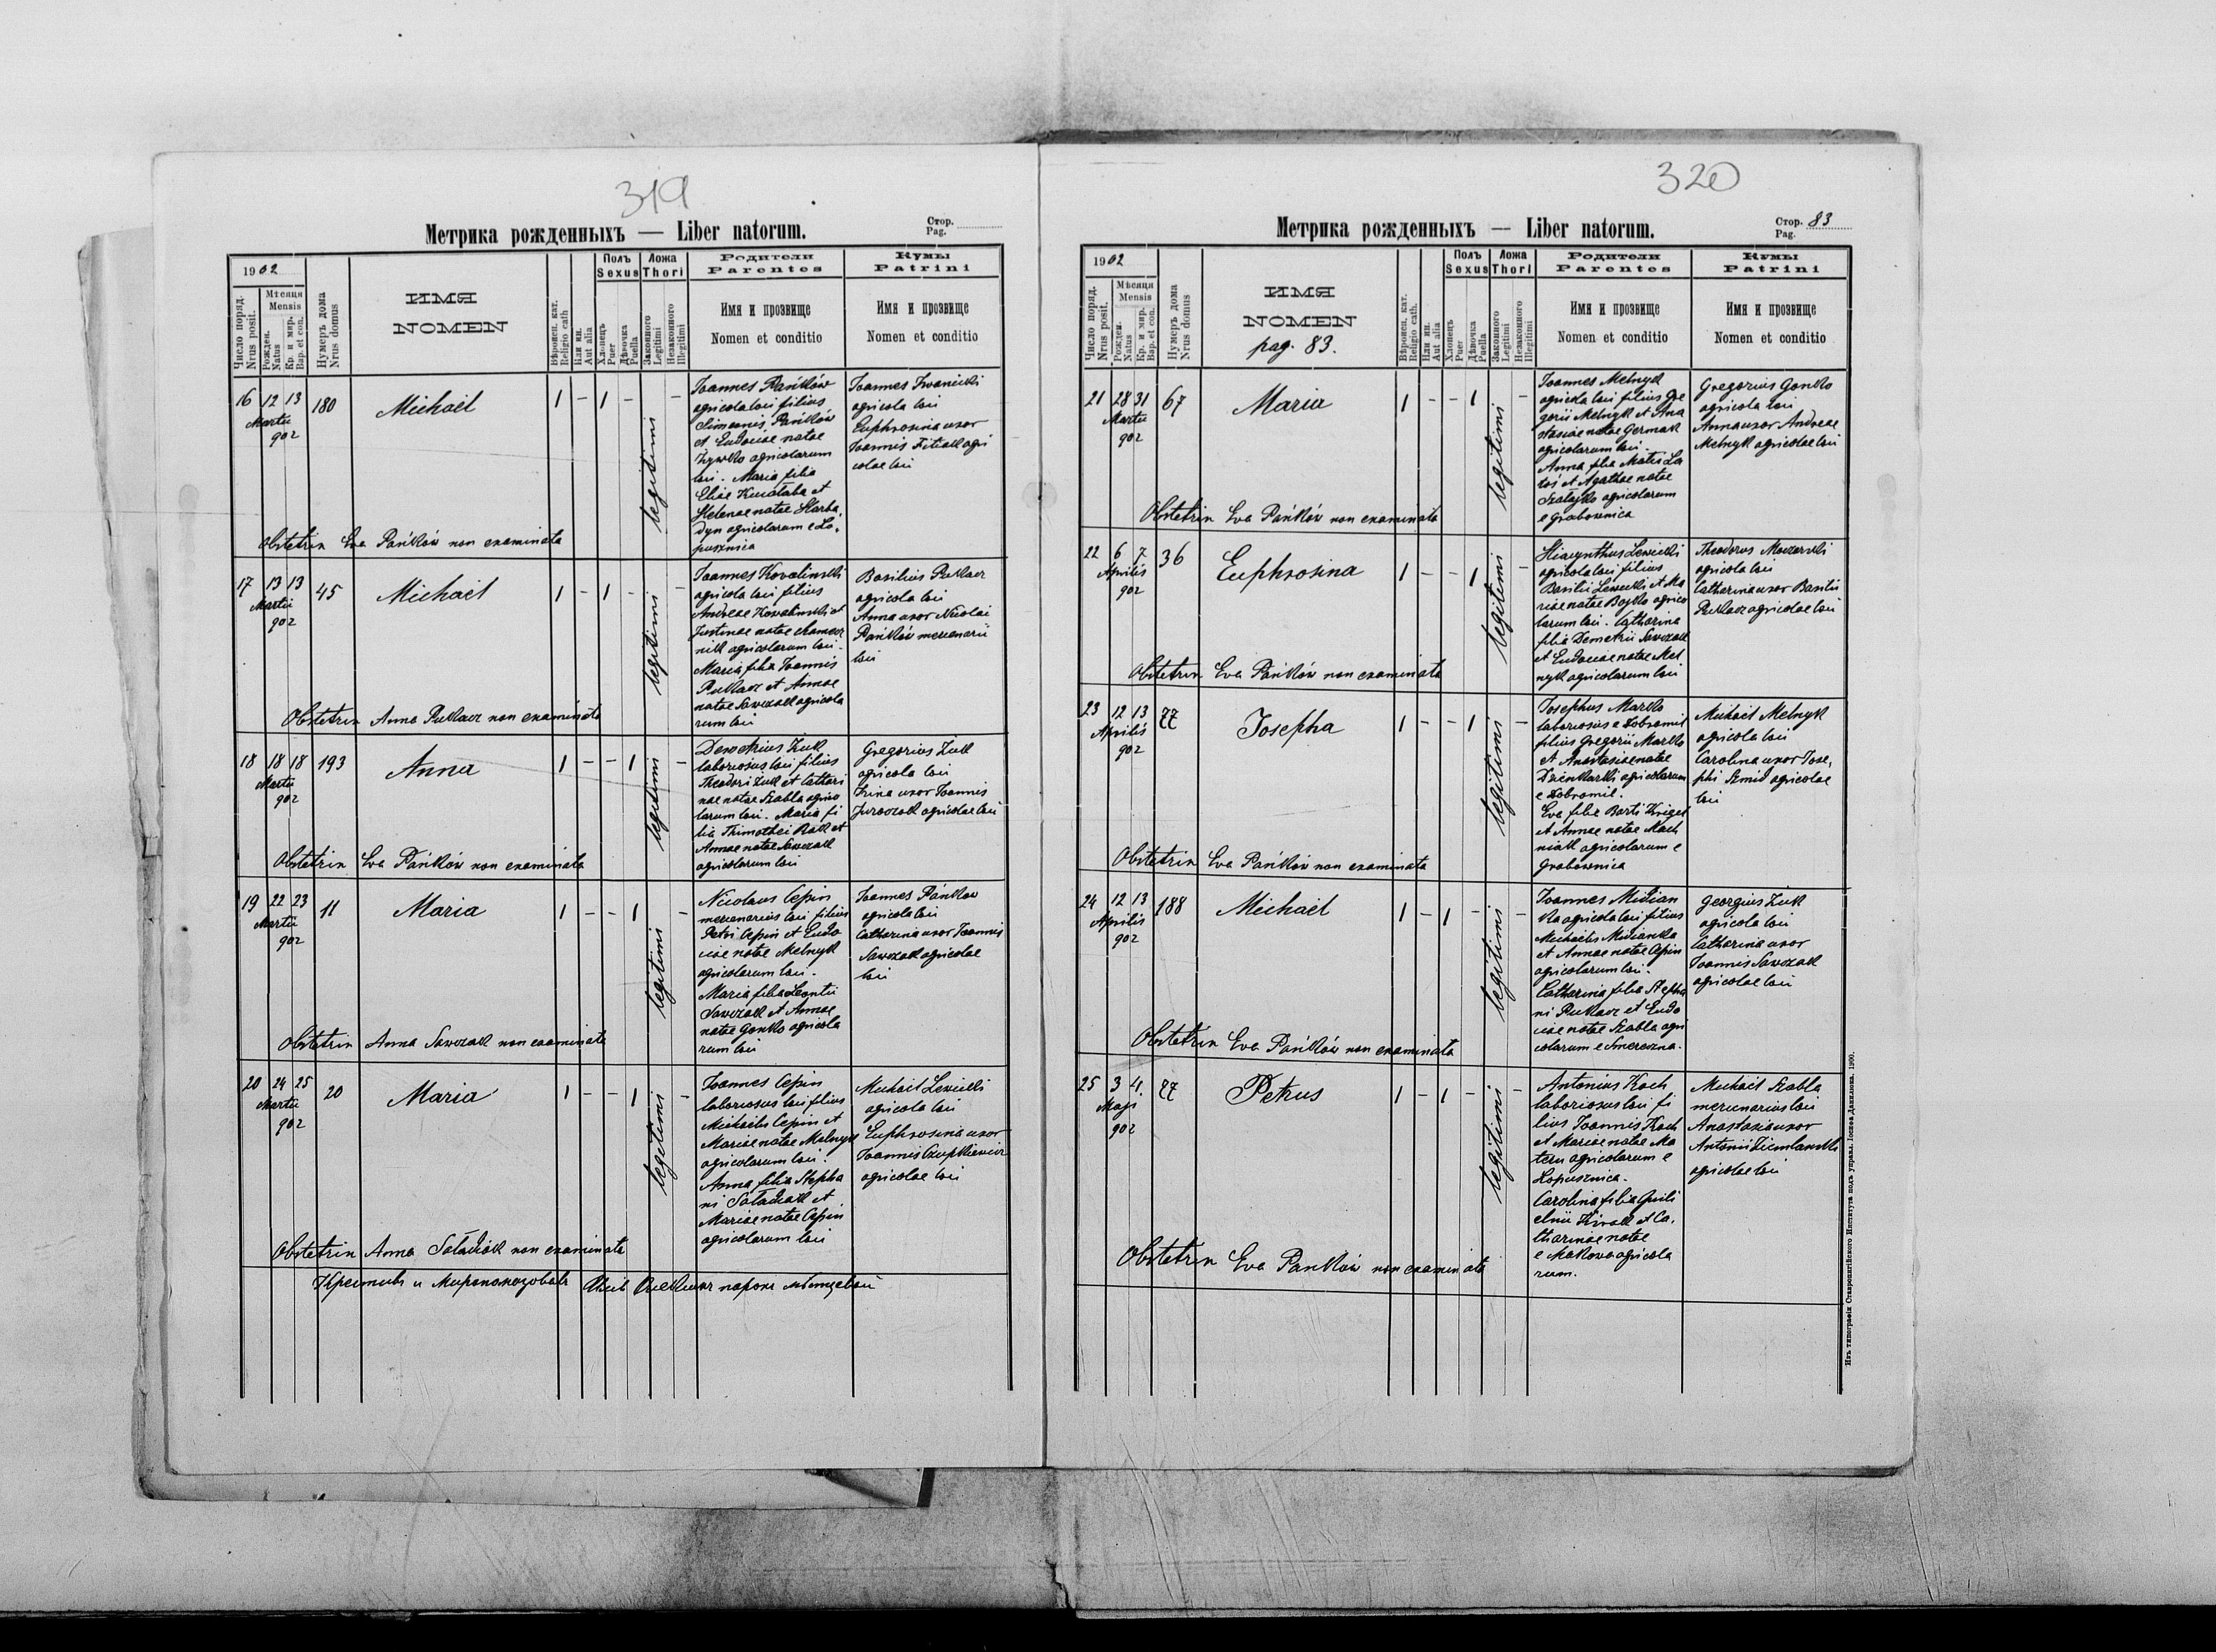 319
Метрика рожденныхъ — Liber natorum.
Стор.
Pag.
1902
Число поряд.
Nrus posit.
Мѣсяця
Mensis
Рожден.
Natus
Кр. и мир.
Bap. et con.
Нумеръ дома
Nrus domus
ИМЯ
NOMEN
Вѣроисп. кат.
Religio cath
Или ин.
Aut alia
Полъ
Sexus
Хлопецъ
Puer
Дѣвочка
Puella
Ложа
Thori
Законного
Legitimi
Незаконного
Illegitimi
Родители
Parentes
Имя и прозвище
Nomen et conditio
Кумы
Patrini
Имя и прозвище
Nomen et conditio
16 12 13 180 Michaël 1 - 1 - legitimi -
Martii
902
Joannes Pańków
agricola loci filius
Simeonis Pańków
et Eudociae natae
Żywko agricolarum
loci. Maria filia
Eliae
Helenae natae Skarba,
dyn agricolarum e Lo,
pusznica
Joannes Iwanicki
agricola loci
Euphrosina uxor
Joannis Fitiak agri
colae loci
Obstetrix Eva Pańków non examinata
17 13 13 45 Michaël 1 - 1 - legitimi -
Martii
902
Joannes Kovalinski
agricola loci filius
Andreae Kowalinski et
Justinae natae
agricolarum loci.
Maria filia Joannis
Puklacz et Annae
natae Sawczak agricola
rum loci
Basilius Puklacz
agricola loci
Anna uxor Nicolai
Pańków mercenarii
loci
Obstetrix Anna Puklacz non examinata
18 18 18 193 Anna 1 - - 1 legitimi -
Martii
902
Demetrius Żuk
laboriosus loci filius
Theodori Żuk et Cathari
nae natae Szabla agrico
larum loci. Maria fi
lia Thimothei Rak et
Annae natae Sawczak
agricolarum loci
Gregorius Żuk
agricola loci
Irina uxor Joannis
Jurczak agricolae loci
Obstetrix Eva Pańków non examinata
19 22 23 11 Maria 1 - - 1 legitimi -
Martii
902
Nicolaus Cepin
mercenarius loci filius
Petri Cepin et Eudo
ciae natae Melnyk
agricolarum loci.
Maria filia Leontii
Sawczak et Annae
natae Gonko agricola
rum loci
Joannes Pańkow
agricola loci
Catharina uxor Joannis
Sawczak agricolae
loci
Obstetrix Anna Sawczak non examinata
20 24 25 20 Maria 1 - - 1 legitimi -
Martii
902
Joannes Cepin
laboriosus loci filius
Michaëlis Cepin et
Mariae natae Melnyk
agricolarum loci.
Anna filia Stepha
ni Soładiak et
Mariae natae Cepin
agricolarum loci
Michaël Lewicki
agricola loci
Euphrosina uxor
Joannis Czupkiewicz
agricolae loci
Obstetrix Anna Soładiak non examinata
Крестивъ и Миропомазовавъ парохъ мѣстцевый
320
Метрика рожденныхъ — Liber natorum.
Стор. 83
Pag.
1902
Число поряд.
Nrus posit.
Мѣсяця
Mensis
Рожден.
Natus
Кр. и мир.
Bap. et con.
Нумеръ дома
Nrus domus
ИМЯ
NOMEN
pag. 83.
Вѣроисп. кат.
Religio cath.
Или ин.
Aut alia
Полъ
Sexus
Хлопецъ
Puer
Дѣвочка
Puella
Ложа
Thori
Законного
Legitimi
Незаконного
Illegitimi
Родители
Parentes
Имя и прозвище
Nomen et conditio
Кумы
Patrini
Имя и прозвище
Nomen et conditio
21 28 31 67 Maria 1 - - 1 legitimi -
Martii
902
Joannes Melnyk
agricola loci filius Gre
gorii Melnyk et Ana
stasiae natae Germak
agricolarum loci.
Anna filia Matis La
tos et Agathae natae
Szatajko agricolarum
e Grabownica
Gregorius Gonko
agricola loci
Anna uxor Andreae
Melnyk agricolae loci
Obstetrix Eva Pańków non examinata
22 6 7 36 Euphrosina 1 - - 1 legitimi -
Aprilis
902
Hiacynthus Lewicki
agricola loci filius
Basilii Lewicki et Ma
riae natae Bojko agrico
larum loci. Catharina
filia Demetrii Sawczak
et Eudociae natae Mel
nyk agricolarum loci
Theodorus Moczarski
agricola loci
Catharina uxor Basilii
Puklacz agricolae loci
Obstetrix Eva Pańków non examinata
23 12 13 77 Josepha 1 - - 1 legitimi -
Aprilis
902
Josephus Marko
laboriosus e Dobromil
filius Gregorii Marko
et Anastasiae natae
Dzienkarki agricolarum
e Dobromil.
Eva filia Barti Kriger
et Annae natae Mach
niak agricolarum e
Grabownica
Michaël Melnyk
agricola loci
Carolina uxor Jose,
phi Szmid agricolae
loci
Obstetrix Eva Pańków non examinata
24 12 13 188 Michaël 1 - 1 - legitimi -
Aprilis
902
Joannes Midian
ka agricola loci filius
Michaëlis Midianka
et Annae natae Cepin
agricolarum loci.
Catharina filia Stepha
ni Puklacz et Eudo
ciae natae Szabla agri
colarum e Smereczna.
Georgius Żuk
agricola loci
Catharina uxor
Joannis Sawczak
agricolae loci
Obstetrix Eva Pańków non examinata
25 3 4. 77 Petrus 1 - 1 - legitimi -
Maji
902
Antonius Koch
laboriosus loci fi
lius Joannis Koch
et Mariae natae Ma
tern agricolarum e
Łopusznica.
Carolina filia Guili
elmi et Ca,
tharinae natae
e Makowa agricola
rum.
Michaël Szabla
mercenarius loci
Anastasia uxor
Antonii Ziemlanski
agricolae loci
Obstetrix Eva Pańków non examinata
Изъ типографіи Ставропигійского Института подъ управл. Іосифа Данилюка. 1900.